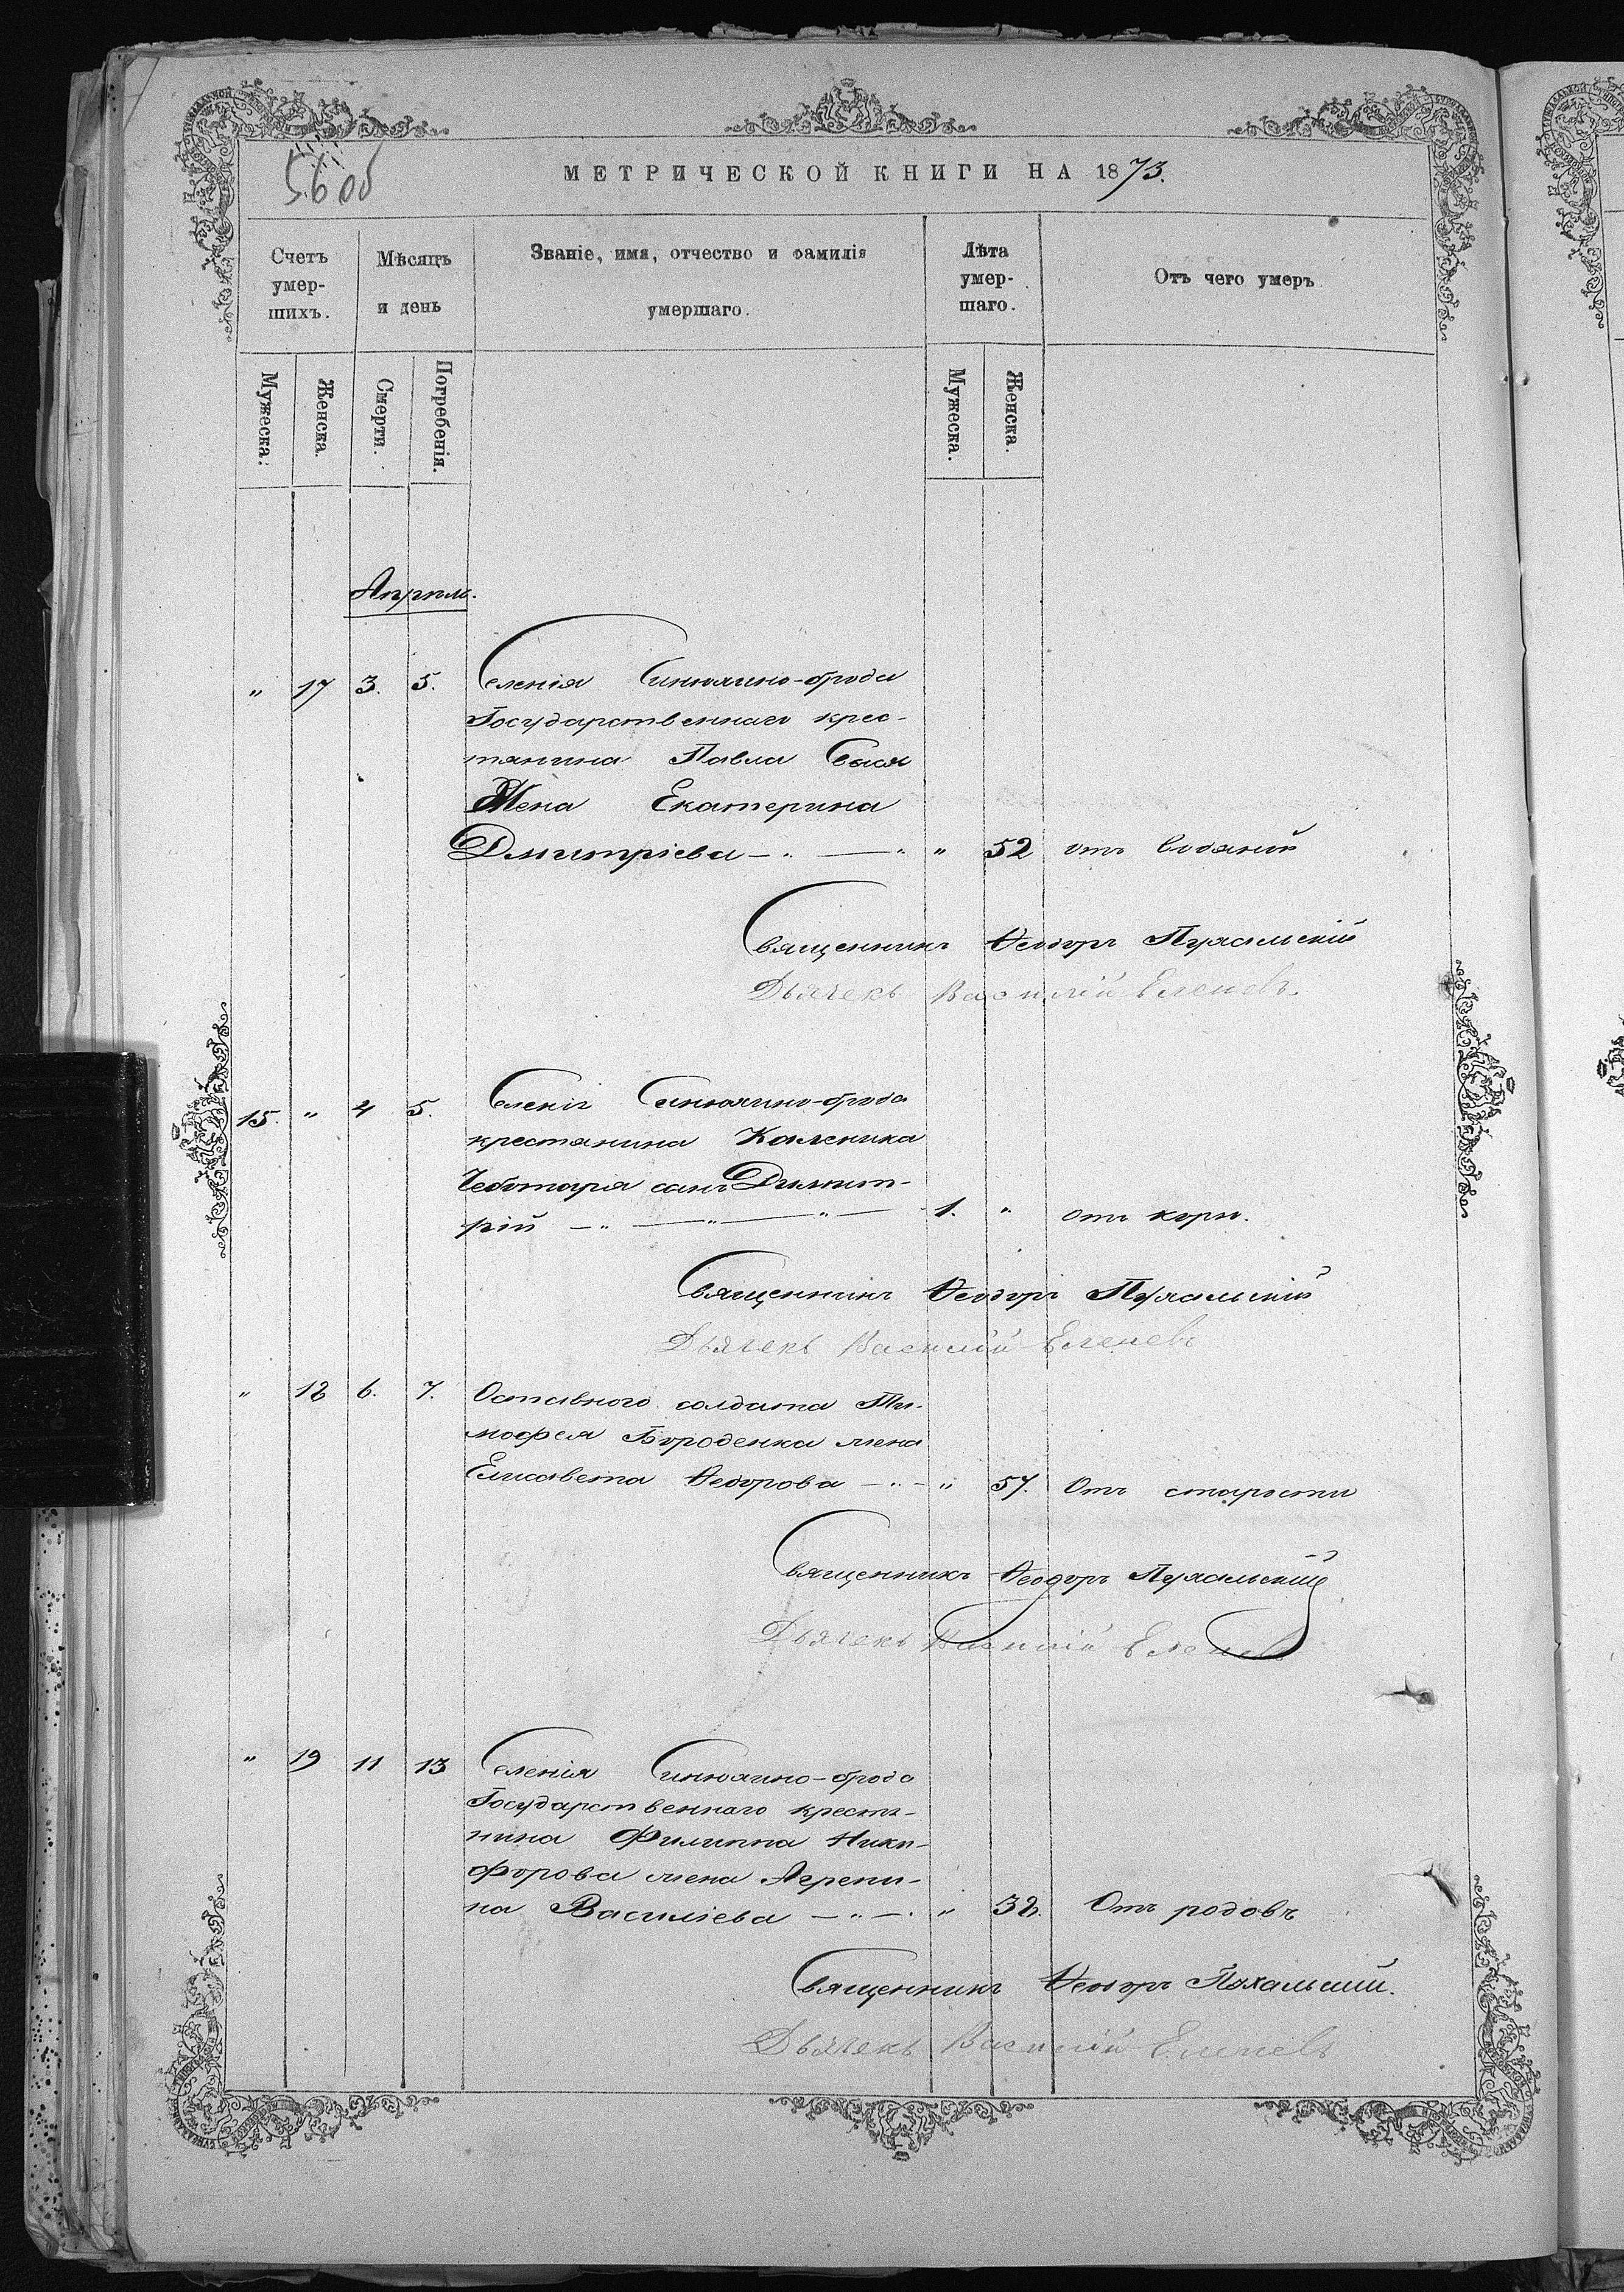 560об
МЕТРИЧЕСКОЙ КНИГИ НА 1873.
Счетъ умер-шихъ.
Мѣсяцъ и день
Званіе, имя, отчество и фамилія умершаго.
Лѣта умер-шаго.
Отъ чего умеръ
Мужеска.
Женска.
Смерти.
Погребенія.
Мужеска.
Женска.
Апрѣль.
" 17 3. 5. Селенія Синюхино-брода
Государственнаго крес-
тянина Павла
Жена Екатерина
Дмитріева —"— " " 52 отъ водяной
Священникъ Ѳеодоръ
Дьячекъ Василій Еленевъ.
15. " 4 5. Селенія Синюхино-брода
крестянина Каленика
Чеботаря сынъ Димит-
рій —"—"—"— 1. " отъ кори.
Священникъ Ѳеодоръ
Дьячекъ Василій Еленевъ
" 18 6. 7. Оставного солдата Ти-
мофея Бороденка жена
Елисавета Ѳедорова —"— " 57. Отъ старости
Священникъ Ѳеодоръ
Дьячекъ Василій Еленевъ
" 19 11 13 Селенія Синюхино-брода
Государственнаго крестя-
нина Филиппа Ники-
форова жена Агрепи-
на Василіева —"—. " 32. Отъ родовъ
Священникъ Ѳеодоръ
Дьячекъ Василій Еленевъ